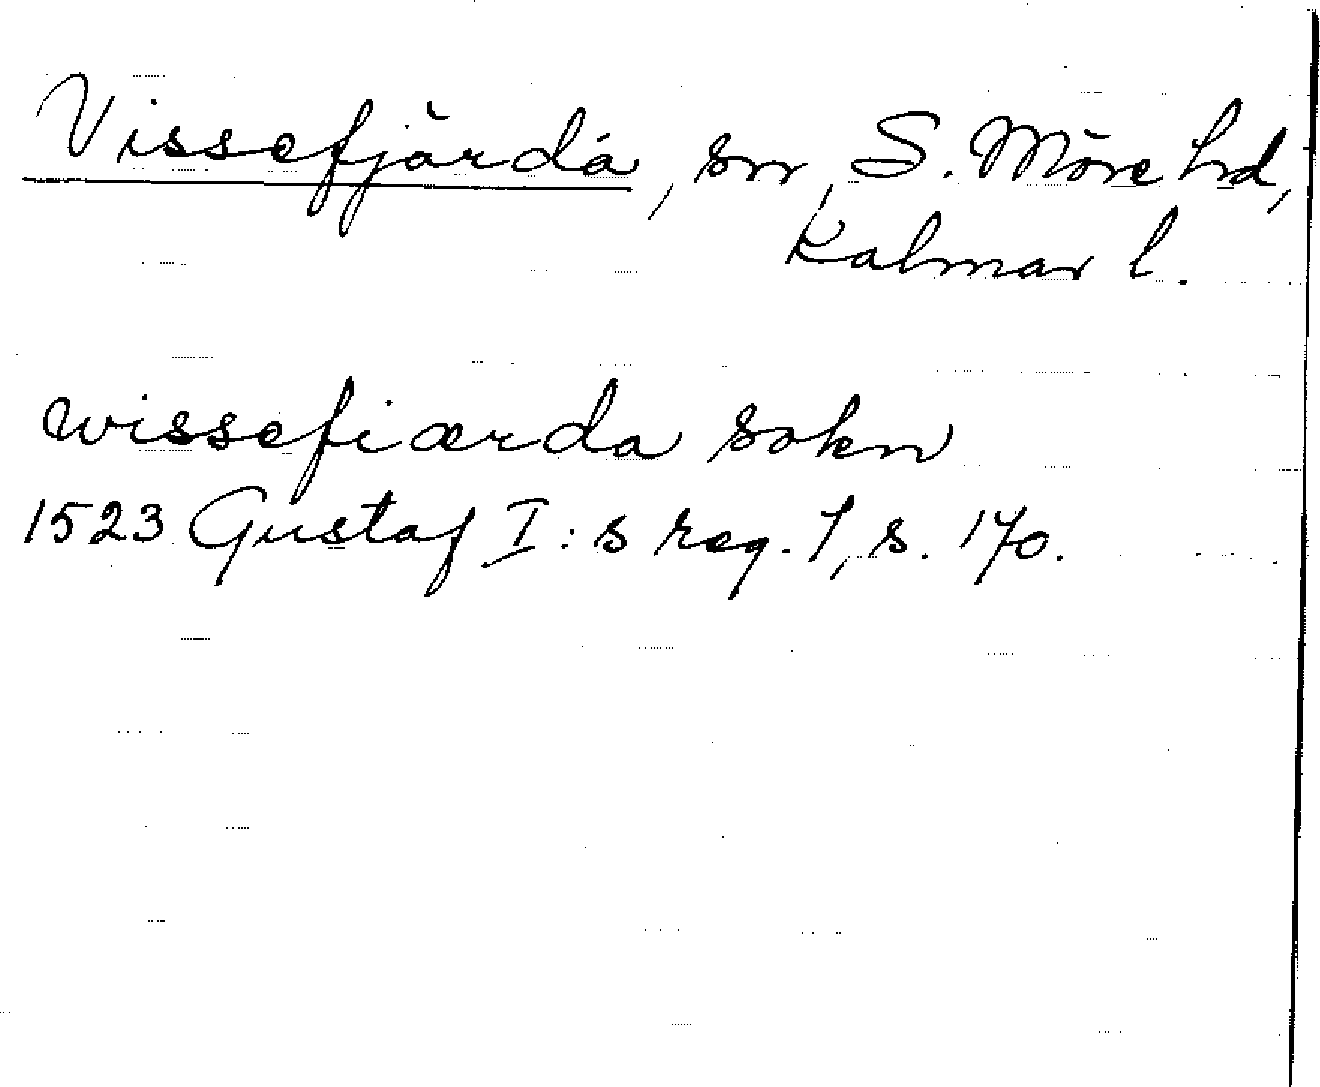 Vissefjärda, sn, S. Möre hd,
Kalmar l.
wissefiærda sokn
1523 Gustaf I:s reg. 1, s. 170.